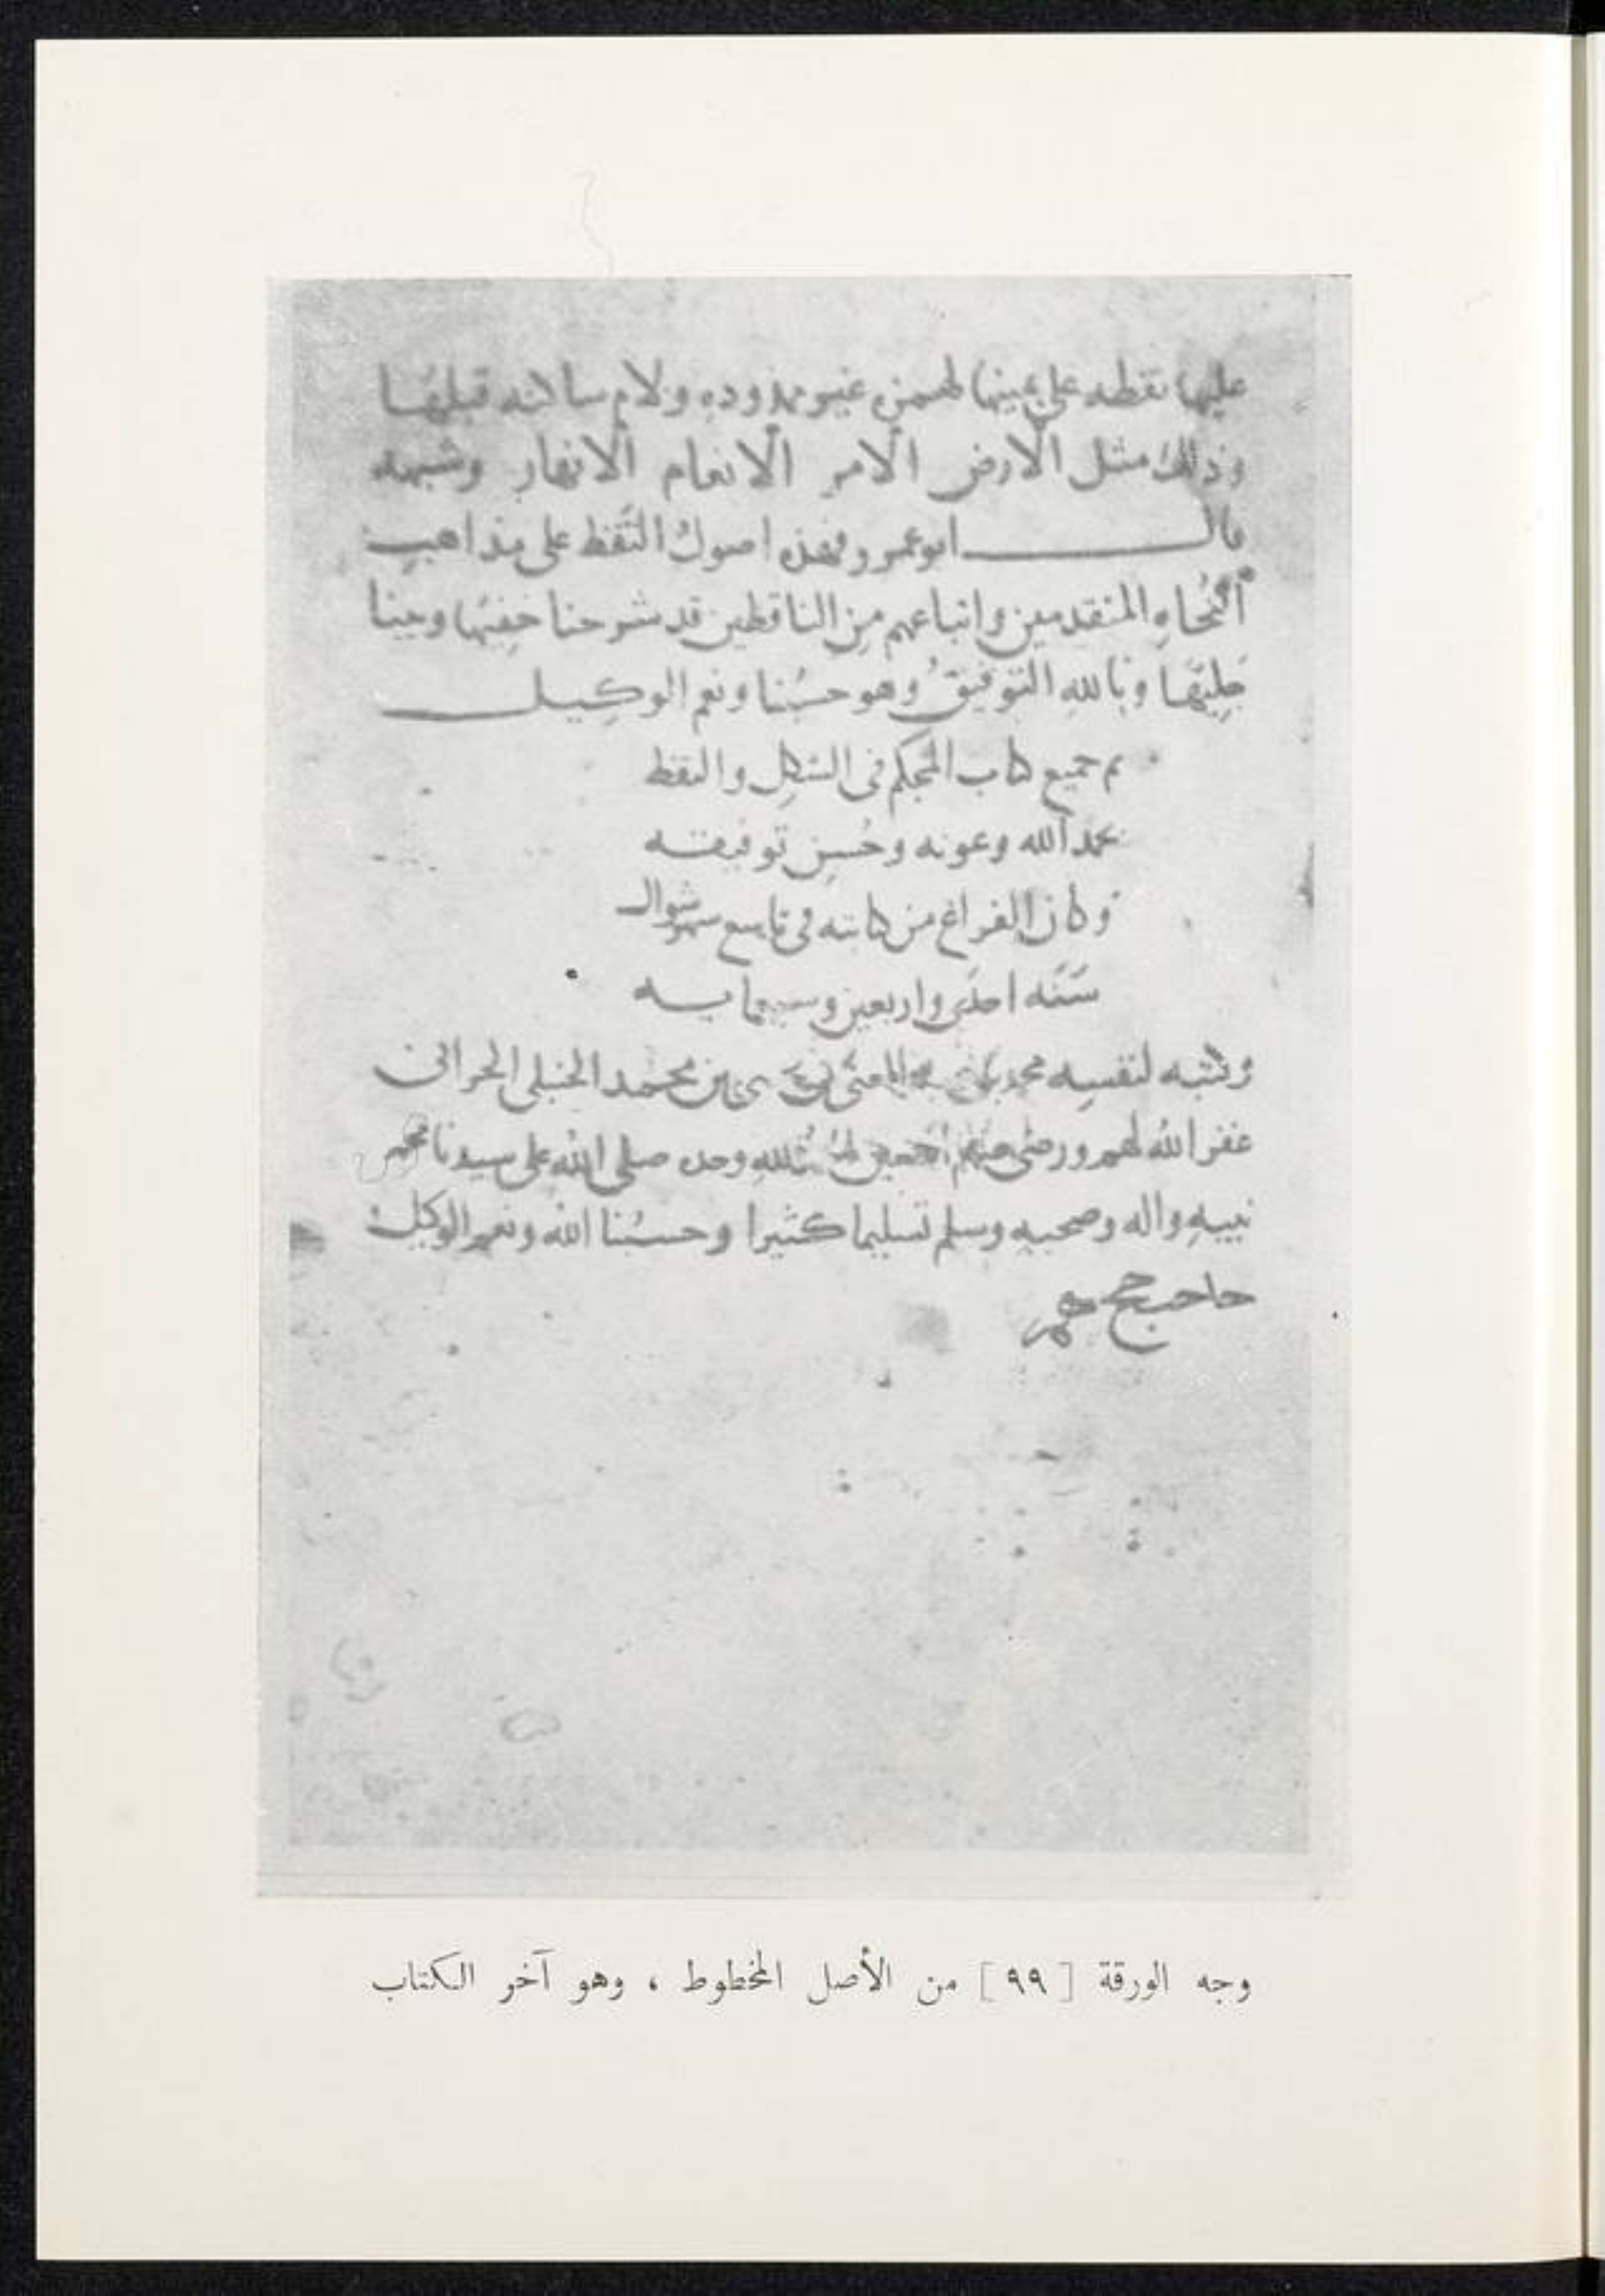 عليها نقطه على يمينها لهمزه غير ممدوده ولام ساكنه قبلها
وذلك مثل الارض الامر الانعام الانهار وشبهه
قال ابو عمرو فهذه اصول النقط على مذاهب
النحاه المتقدمين واتباعهم من الناقطين قد شرحنا خفيها وبينا
جليها وبالله التوفيق وهو حسبنا ونعم الوكيل
تم جميع كتاب المحكم في الشكل والنقط
بحمد الله وعونه وحسن توفيقه
وكان الفراغ من كتابته في تاسع شهر شوال
سنه احدى واربعين وسبعمايه
وكتبه لنفسه محمد بن محمد الحنبلي الحراني
غفر الله لهم ورضي عنهم اجمعين لله وحده صلى الله على سيدنا محمد
نبيه واله وصحبه وسلم تسليما كثيرا وحسبنا الله ونعم الوكيل
وجه الورقة [ ٩٩ ] من الأصل المخطوط ، وهو آخر الكتاب